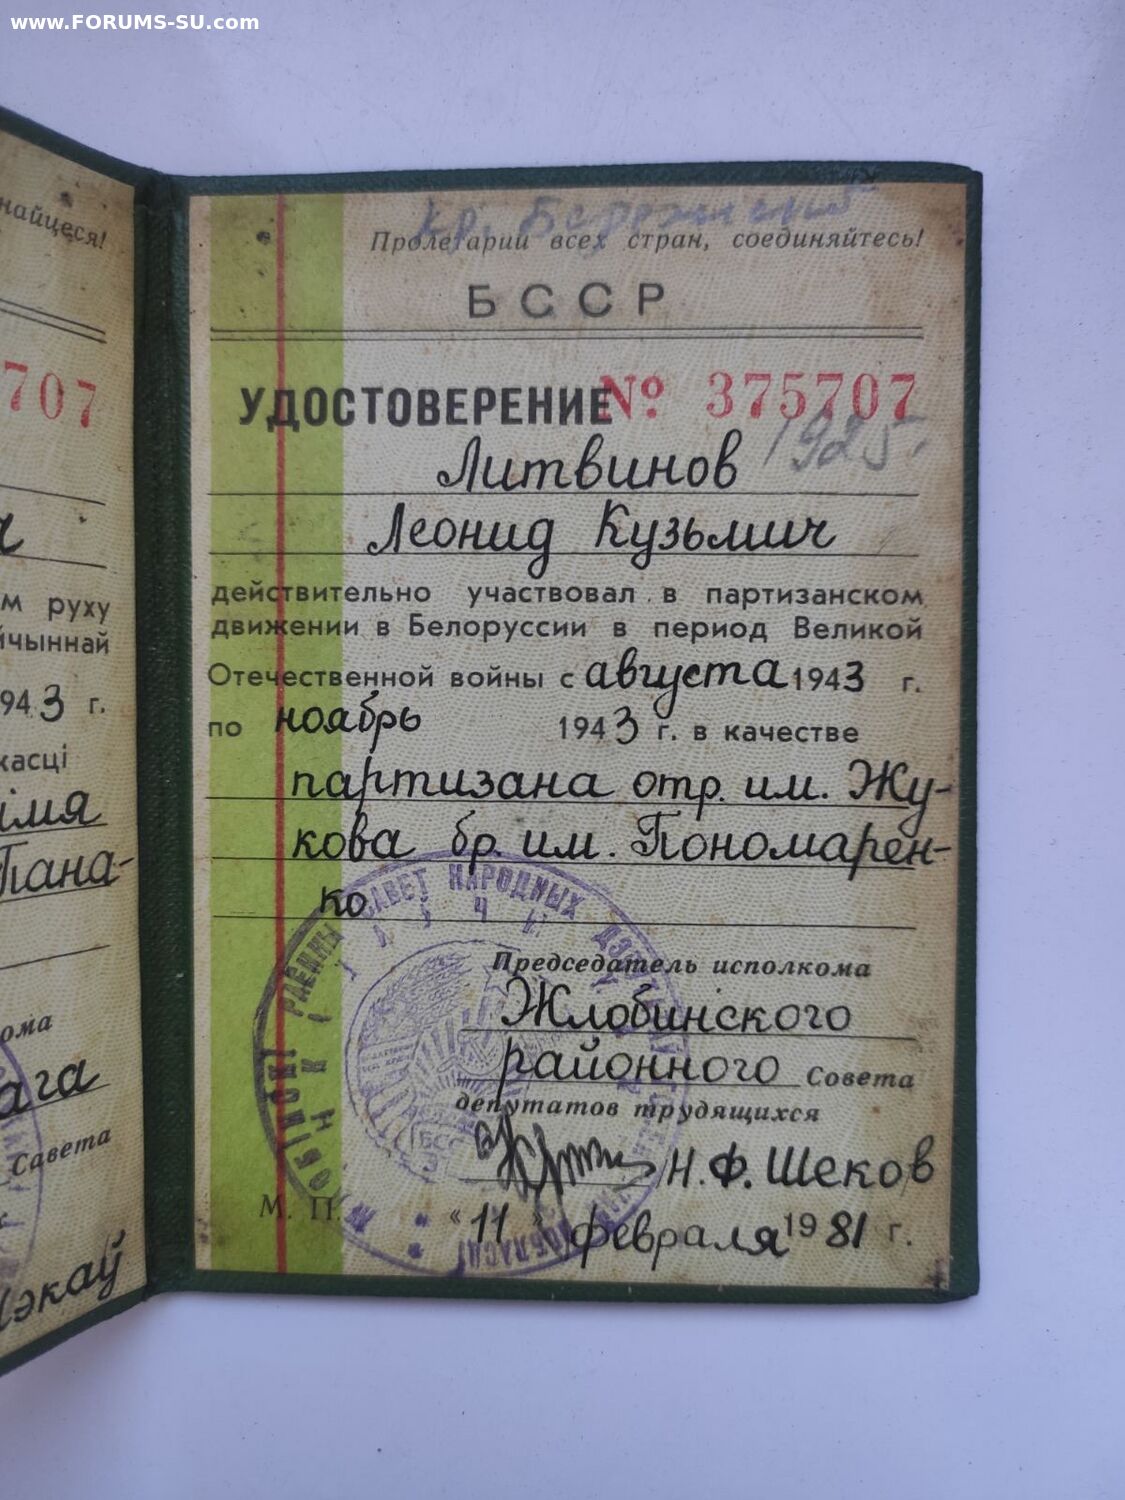 www.FORUMS-SU.com
найцеся!
707
м руху
йчыннай
1943 г.
касці
імя
Пана-
ома
ага
Савета
Шэкаў
Пролетарии всех стран, соединяйтесь!
БССР
УДОСТОВЕРЕНИЕ № 375707
1925 г.
Литвинов
Леонид Кузьмич
действительно участвовал в партизанском
движении в Белоруссии в период Великой
Отечественной войны с августа 1943 г.
по ноябрь 1943 г. в качестве
партизана отр. им. Жу-
кова бр. им. Пономарен-
ко
САВЕТ НАРОДНЫХ
Председатель исполкома
Жлобинского
районного Совета
депутатов трудящихся
Н. Ф. Шеков
М. П. "11" февраля 1981 г.